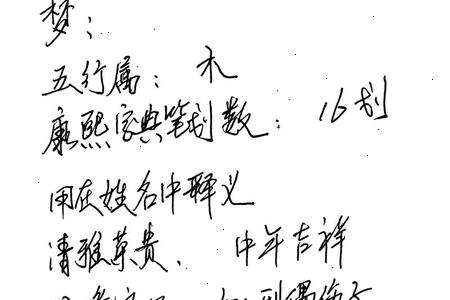 梦：
五行属：木
康熙字典笔划数：16划
用在姓名中释义
清雅荣贵、中年吉祥